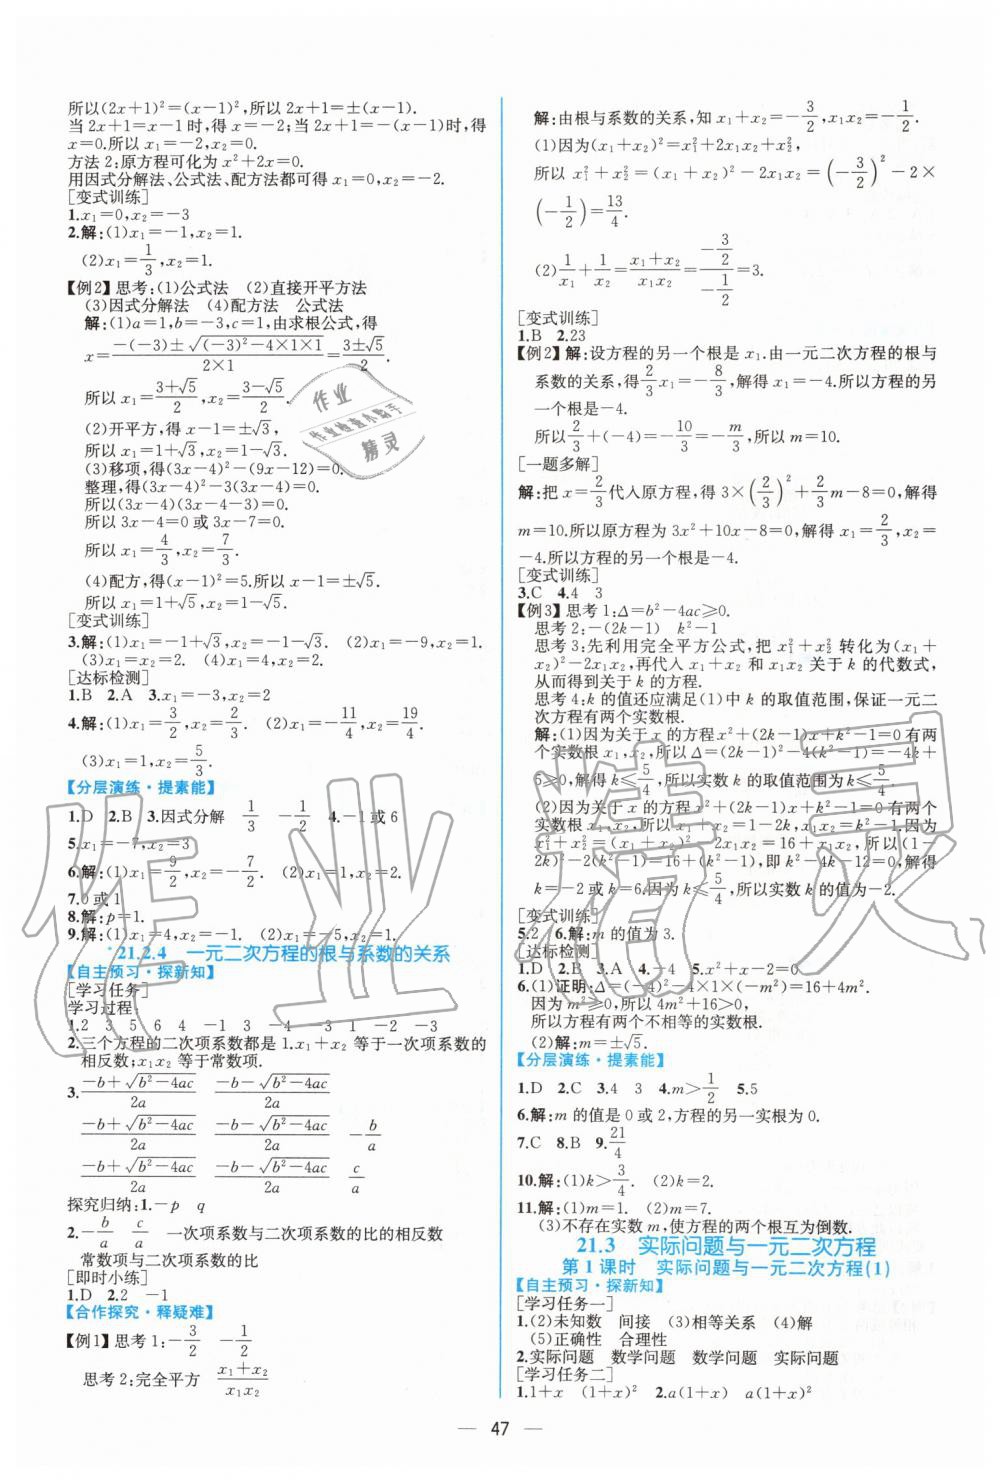 所以(2x+1)²=(x-1)²,所以2x+1=±(x-1).
当2x+1=x-1时,得x=-2;当2x+1=-(x-1)时,得
x=0.所以x₁=-2,x₂=0.
方法2:原方程可化为x²+2x=0.
用因式分解法、公式法、配方法都可得x₁=0,x₂=-2.
[变式训练]
1.x₁=0,x₂=-3
2.解:(1)x₁=-1,x₂=1.
(2)x₁=1/3,x₂=1.
【例2】思考:(1)公式法 (2)直接开平方法
(3)因式分解法 (4)配方法 公式法
解:(1)a=1,b=-3,c=1,由求根公式,得
x=(-(-3)±√((-3)²-4×1×1))/(2×1)=(3±√5)/2.
所以x₁=(3+√5)/2,x₂=(3-√5)/2.
(2)开平方,得x-1=±√3,
所以x₁=1+√3,x₂=1-√3.
(3)移项,得(3x-4)²-(9x-12)=0.
整理,得(3x-4)²-3(3x-4)=0.
所以(3x-4)(3x-4-3)=0.
所以3x-4=0或3x-7=0.
所以x₁=4/3,x₂=7/3.
(4)配方,得(x-1)²=5.所以x-1=±√5.
所以x₁=1+√5,x₂=1-√5.
[变式训练]
3.解:(1)x₁=-1+√3,x₂=-1-√3. (2)x₁=-9,x₂=1.
(3)x₁=x₂=2. (4)x₁=1,x₂=2.
[达标检测]
1.B 2.A 3.x₁=-3,x₂=2
4.解:(1)x₁=3/2,x₂=2/3. (2)x₁=-11/4,x₂=19/4.
(3)x₁=x₂=5/3.
【分层演练·提素能】
1.D 2.B 3.因式分解 1/3 -1/2 4.-1或6
5.x₁=-7,x₂=3
6.解:(1)x₁=9/2,x₂=-7/2. (2)x₁=1,x₂=2.
7.0或1
8.解:p=1.
9.解:(1)x₁=4,x₂=-1. (2)x₁=1,x₂=2.
*21.2.4 一元二次方程的根与系数的关系
【自主预习·探新知】
[学习任务]
学习过程:
1.2 3 5 6 4 -1 3 -4 -3 1 -2 -3
2.三个方程的二次项系数都是1.x₁+x₂等于一次项系数的
相反数;x₁x₂等于常数项.
3.(-b+√(b²-4ac))/2a (-b-√(b²-4ac))/2a
(-b+√(b²-4ac))/2a (-b-√(b²-4ac))/2a -b/a
(-b+√(b²-4ac))/2a (-b-√(b²-4ac))/2a c/a
探究归纳:1.-p q
2.-b/a c/a 一次项系数与二次项系数的比的相反数
常数项与二次项系数的比
[即时小练]
1.D 2.2 -1
【合作探究·释疑难】
【例1】思考1:-3/2 -1/2
思考2:完全平方 (x₁+x₂)/(x₁x₂)
解:由根与系数的关系,知x₁+x₂=-3/2,x₁x₂=-1/2.
(1)因为(x₁+x₂)²=x₁²+2x₁x₂+x₂²,
所以x₁²+x₂²=(x₁+x₂)²-2x₁x₂=(-3/2)²-2×
(-1/2)=13/4.
(2)1/x₁+1/x₂=(x₁+x₂)/(x₁x₂)=(-3/2)/(-1/2)=3.
[变式训练]
1.B 2.23
【例2】解:设方程的另一个根是x₁.由一元二次方程的根与
系数的关系,得2/3x₁=-8/3,解得x₁=-4.所以方程的另
一个根是-4.
所以2/3+(-4)=-10/3=-m/3,所以m=10.
[一题多解]
解:把x=2/3代入原方程,得3×(2/3)²+2/3m-8=0,解得
m=10.所以原方程为3x²+10x-8=0,解得x₁=2/3,x₂=
-4.所以方程的另一个根是-4.
[变式训练]
3.C 4.4 3
【例3】思考1:Δ=b²-4ac≥0.
思考2:-(2k-1) k²-1
思考3:先利用完全平方公式,把x₁²+x₂²转化为(x₁+
x₂)²-2x₁x₂,再代入x₁+x₂和x₁x₂关于k的代数式,
从而得到关于k的方程.
思考4:k的值还应满足(1)中k的取值范围,保证一元二
次方程有两个实数根.
解:(1)因为关于x的方程x²+(2k-1)x+k²-1=0有两
个实数根x₁,x₂,所以Δ=(2k-1)²-4(k²-1)=-4k+
5≥0,解得k≤5/4,所以实数k的取值范围为k≤5/4.
(2)因为关于x的方程x²+(2k-1)x+k²-1=0有两个
实数根x₁,x₂,所以x₁+x₂=1-2k,x₁x₂=k²-1.
因为x₁²+x₂²=(x₁+x₂)²-2x₁x₂=16+x₁x₂,所以(1-
2k)²-2(k²-1)=16+(k²-1),即k²-4k-12=0,解得
k=-2或k=6.因为k≤5/4,所以实数k的值为-2.
[变式训练]
5.2 6.解:m的值为3.
[达标检测]
1.D 2.B 3.A 4.-4 5.x²+x-2=0
6.(1)证明:Δ=(-4)²-4×1×(-m²)=16+4m².
因为m²≥0,所以16+4m²>0,
所以方程有两个不相等的实数根.
(2)解:m=±√5.
【分层演练·提素能】
1.D 2.C 3.4 3 4.m>1/2 5.5
6.解:m的值是0或2,方程的另一实根为0.
7.C 8.B 9.21/4
10.解:(1)k>3/4. (2)k=2.
11.解:(1)m=1. (2)m=7.
(3)不存在实数m,使方程的两个根互为倒数.
21.3 实际问题与一元二次方程
第1课时 实际问题与一元二次方程(1)
【自主预习·探新知】
[学习任务一]
1.(2)未知数 间接 (3)相等关系 (4)解
(5)正确性 合理性
2.实际问题 数学问题 数学问题 实际问题
[学习任务二]
1.1+x (1+x)² 2.a(1+x) a(1+x)²
— 47 —
作业
作业检查小助手
精灵
作业精灵